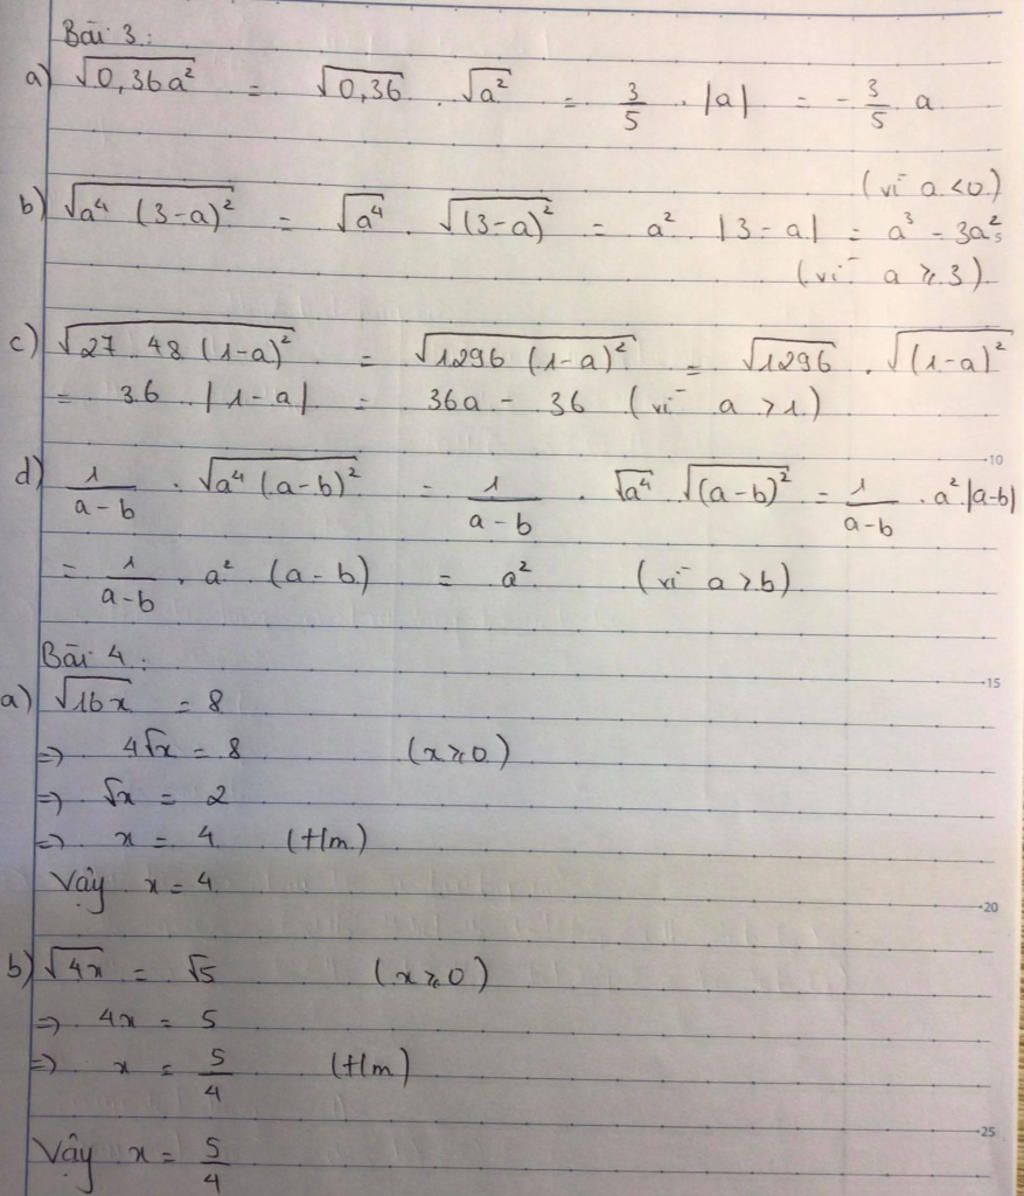 Bài 3:
a) √(0,36a²) = √(0,36) . √(a²) = 3/5 . |a| = - 3/5 . a
(vì a < 0)
b) √(a⁴ (3-a)²) = √(a⁴) . √((3-a)²) = a² . |3-a| = a³ - 3a²
(vì a ≥ 3)
c) √(27 . 48 (1-a)²) = √(1296 (1-a)²) = √(1296) . √((1-a)²)
= 36 . |1-a| = 36a - 36 (vì a > 1)
10
d) 1/(a-b) . √(a⁴ (a-b)²) = 1/(a-b) . √(a⁴) √((a-b)²) = 1/(a-b) . a² . |a-b|
= 1/(a-b) . a² (a-b) = a² (vì a > b)
Bài 4:
15
a) √(16x) = 8
=> 4√x = 8 (x ≥ 0)
=> √x = 2
=> x = 4 (t/m)
Vậy x = 4
20
b) √(4x) = √5 (x ≥ 0)
=> 4x = 5
=> x = 5/4 (t/m)
25
Vậy x = 5/4